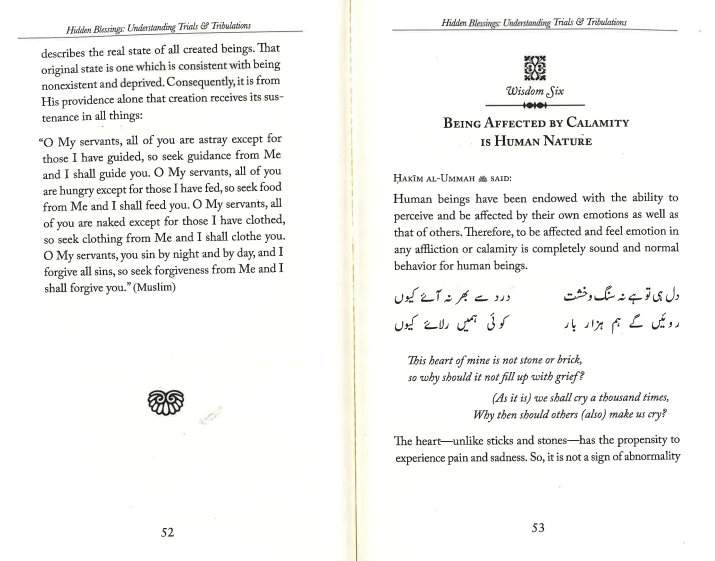 Hidden Blessings: Understanding Trials & Tribulations
describes the real state of all created beings. That
original state is one which is consistent with being
nonexistent and deprived. Consequently, it is from
His providence alone that creation receives its sus-
tenance in all things:
“O My servants, all of you are astray except for
those I have guided, so seek guidance from Me
and I shall guide you. O My servants, all of you
are hungry except for those I have fed, so seek food
from Me and I shall feed you. O My servants, all
of you are naked except for those I have clothed,
so seek clothing from Me and I shall clothe you.
O My servants, you sin by night and by day, and I
forgive all sins, so seek forgiveness from Me and I
shall forgive you.” (Muslim)
52
Hidden Blessings: Understanding Trials & Tribulations
Wisdom Six
Being Affected by Calamity
is Human Nature
Ḥakīm al-Ummah said:
Human beings have been endowed with the ability to
perceive and be affected by their own emotions as well as
that of others. Therefore, to be affected and feel emotion in
any affliction or calamity is completely sound and normal
behavior for human beings.
دل ہی تو ہے نہ سنگ و خشت درد سے بھر نہ آئے کیوں
روئیں گے ہم ہزار بار کوئی ہمیں رلائے کیوں
This heart of mine is not stone or brick,
so why should it not fill up with grief?
(As it is) we shall cry a thousand times,
Why then should others (also) make us cry?
The heart—unlike sticks and stones—has the propensity to
experience pain and sadness. So, it is not a sign of abnormality
53